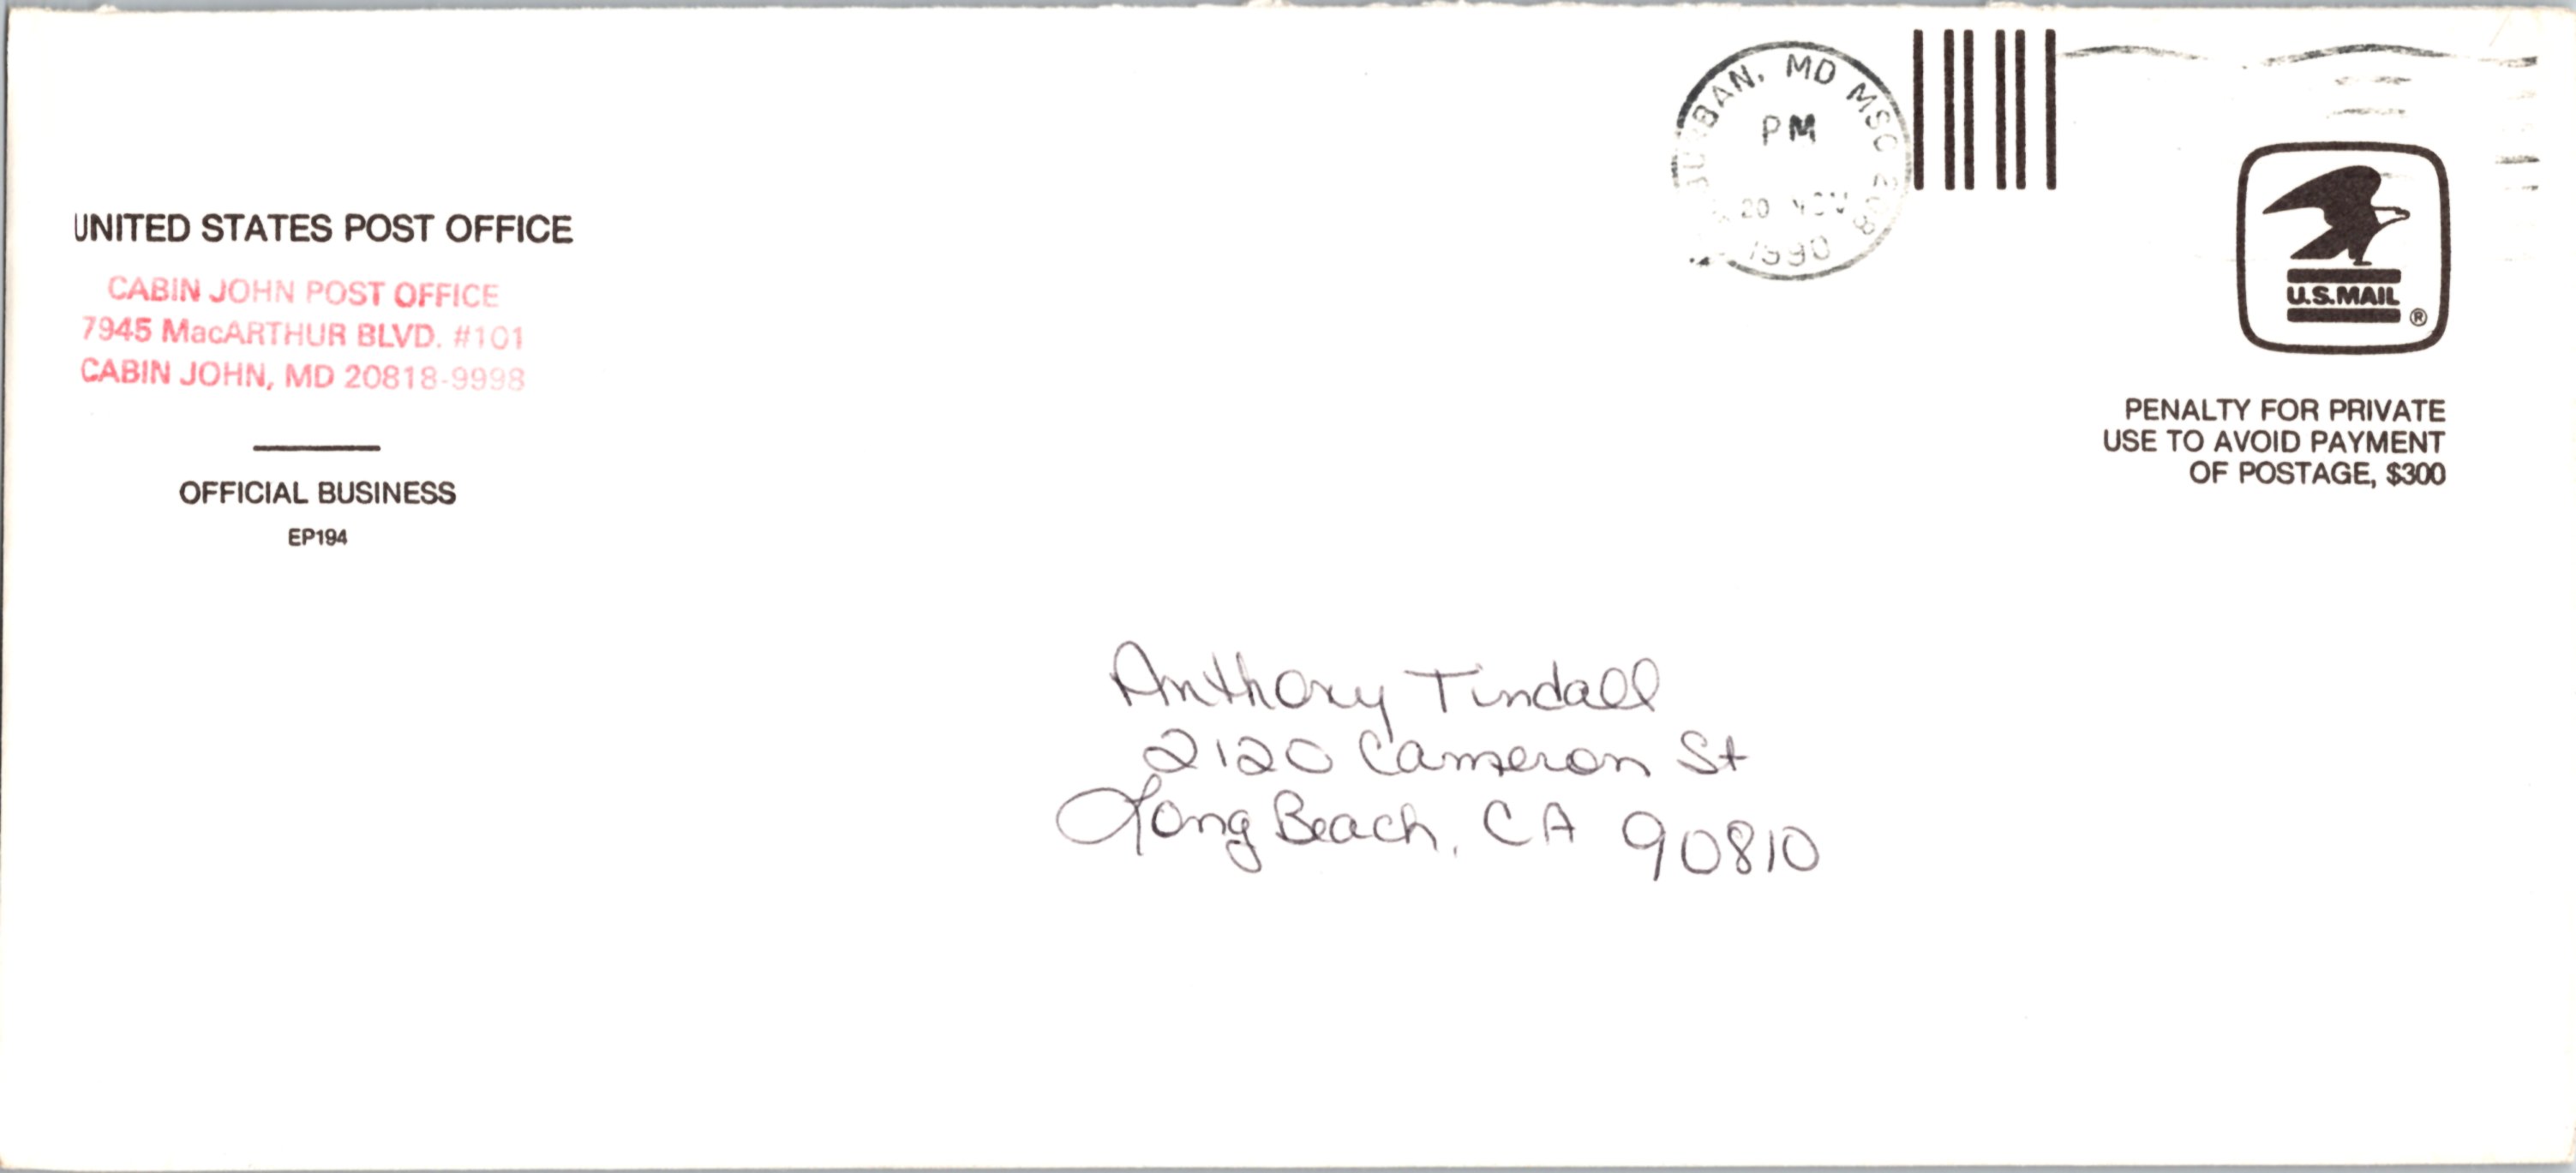 UNITED STATES POST OFFICE
CABIN JOHN POST OFFICE
7945 MacARTHUR BLVD. #101
CABIN JOHN, MD 20818-9998
OFFICIAL BUSINESS
EP194
MD MSC 208
PM
20 NOV
1990
U.S.MAIL
®
PENALTY FOR PRIVATE
USE TO AVOID PAYMENT
OF POSTAGE, $300
Anthony Tindall
2120 Cameron St
Long Beach, CA 90810